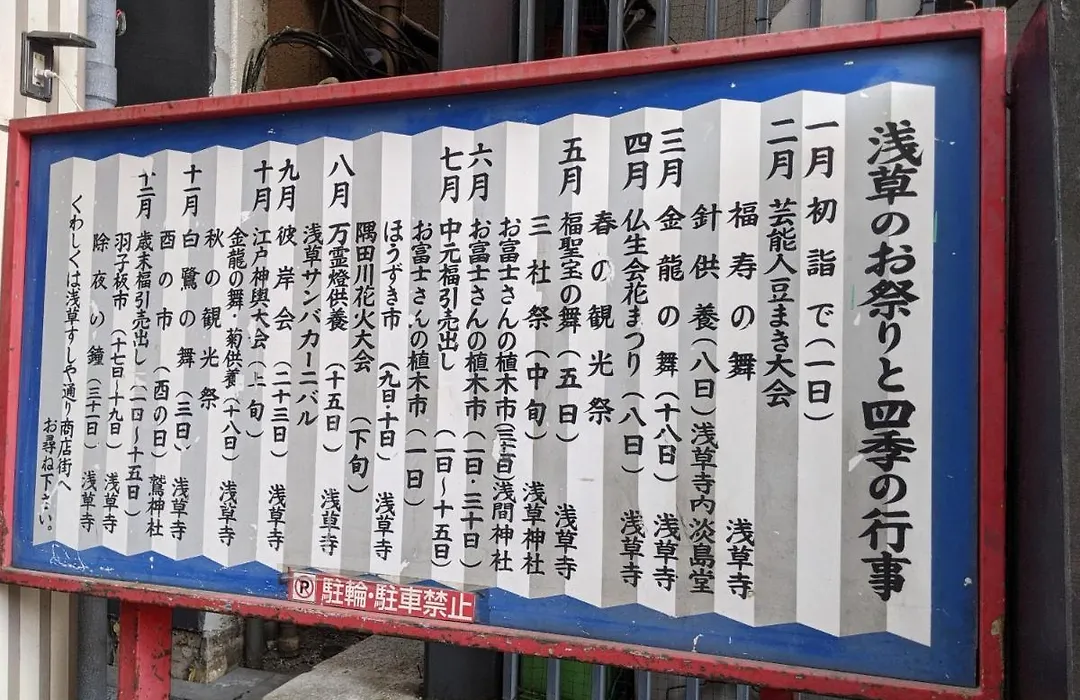 浅草のお祭りと四季の行事
一月 初詣で(一日)
二月 芸能人豆まき大会
福寿の舞 浅草寺
針供養(八日)浅草寺内淡島堂
三月 金龍の舞(十八日) 浅草寺
四月 仏生会花まつり(八日) 浅草寺
春の観光祭
五月 福聖宝の舞(五日) 浅草寺
三社祭(中旬) 浅草神社
お富士さんの植木市(三十一日)浅間神社
六月 お富士さんの植木市(一日・三十日)
七月 中元福引売出し(一日~十五日)
お富士さんの植木市(一日)
ほうずき市(九日・十日) 浅草寺
隅田川花火大会(下旬)
八月 万霊燈供養(十五日) 浅草寺
浅草サンバカーニバル
九月 彼岸会(二十三日) 浅草寺
十月 江戸神輿大会(上旬)
金龍の舞・菊供養(十八日) 浅草寺
秋の観光祭
十一月 白鷺の舞(三日) 浅草寺
酉の市(酉の日) 鷲神社
十二月 歳末福引売出し(一日~十五日)
羽子板市(十七日~十九日) 浅草寺
除夜の鐘(三十一日) 浅草寺
くわしくは浅草すしや通り商店街へ
お尋ね下さい。
P 駐輪・駐車禁止